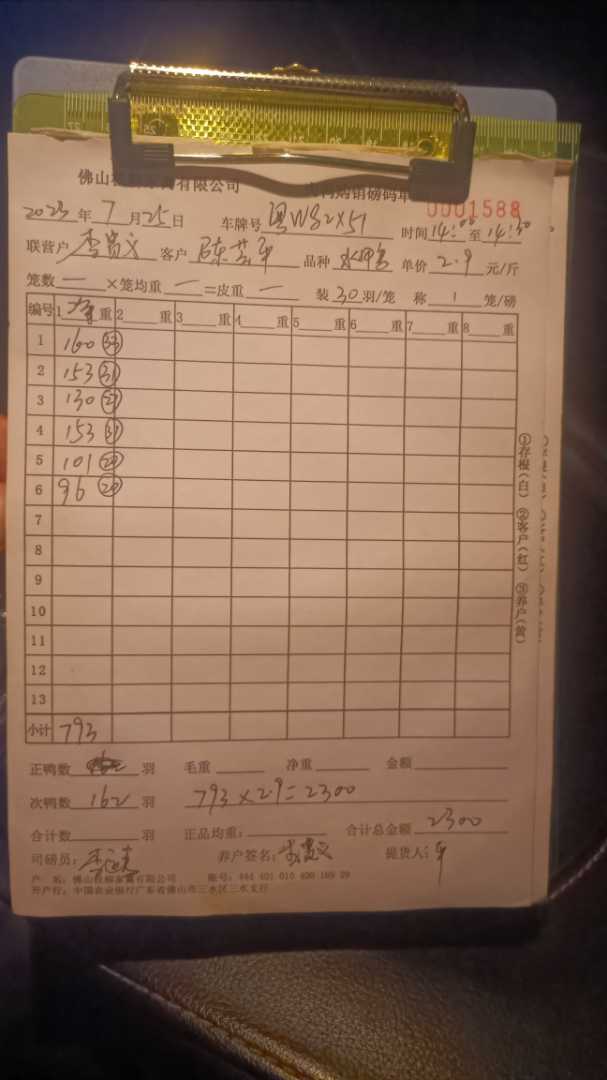 佛山 有限公司 磅码单
0001588
2023年7月25日 车牌号 粤WS2X51 时间14:00至14:30
联营户 李贵文 客户 陈 品种 水鸭 单价2.9元/斤
笼数 一 ×笼均重 一 =皮重 一 装30羽/笼 称 1 笼/磅
编号 1 重 2 重 3 重 4 重 5 重 6 重 7 重 8 重
1 160 33
2 153 31
3 130 27
4 153 31
5 101 20
6 96 20
7
8
9
10
11
12
13
小计 793
①存根(白) ②客户(红) ③养户(黄)
正鸭数 羽 毛重 净重 金额
次鸭数 162 羽 793×2.9=2300
合计数 羽 正品均重: 合计总金额 2300
司磅员: 李 养户签名: 李贵文 提货人:
户 名: 佛山 有限公司 账号: 444 401 010 400 169 29
开户行: 中国农业银行广东省佛山市三水区三水支行